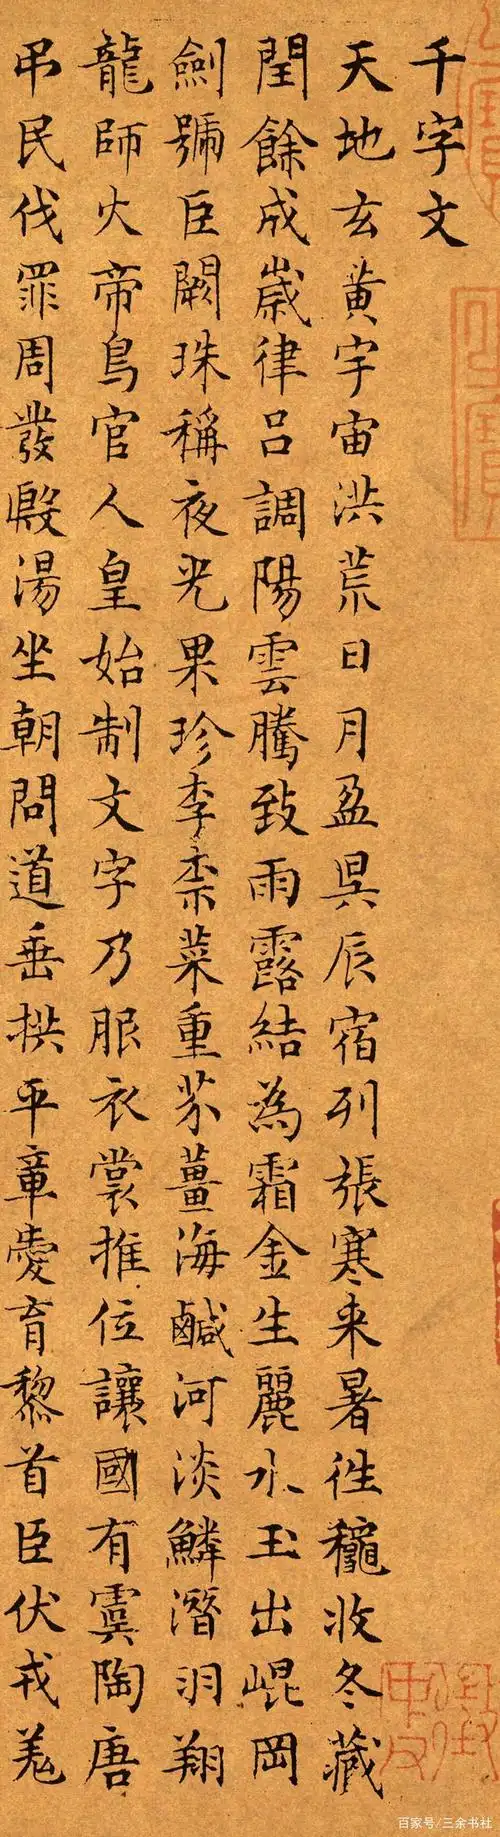 千字文
天地玄黄宇宙洪荒日月盈昃辰宿列張寒来暑往穐收冬藏
閏餘成歲律呂調陽雲騰致雨露結為霜金生麗水玉出崐岡
劍號巨闕珠稱夜光果珍李柰菜重芥薑海鹹河淡鱗潛羽翔
龍師火帝鳥官人皇始制文字乃服衣裳推位讓國有虞陶唐
弔民伐罪周發殷湯坐朝問道垂拱平章愛育黎首臣伏戎羌
百家号/三余书社